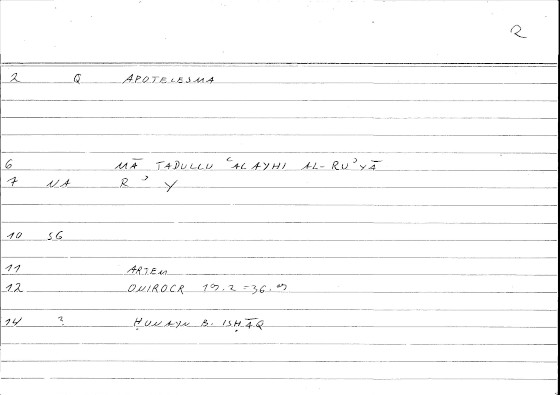 2
2 Q APOTELESMA
6 MĀ TADULLU ʿALAYHI AL-RUʾYĀ
7 NA R ʾ Y
10 SG
11 ARTEM
12 ONIROCR
14 ? ḤUNAYN B. ISḤĀQ